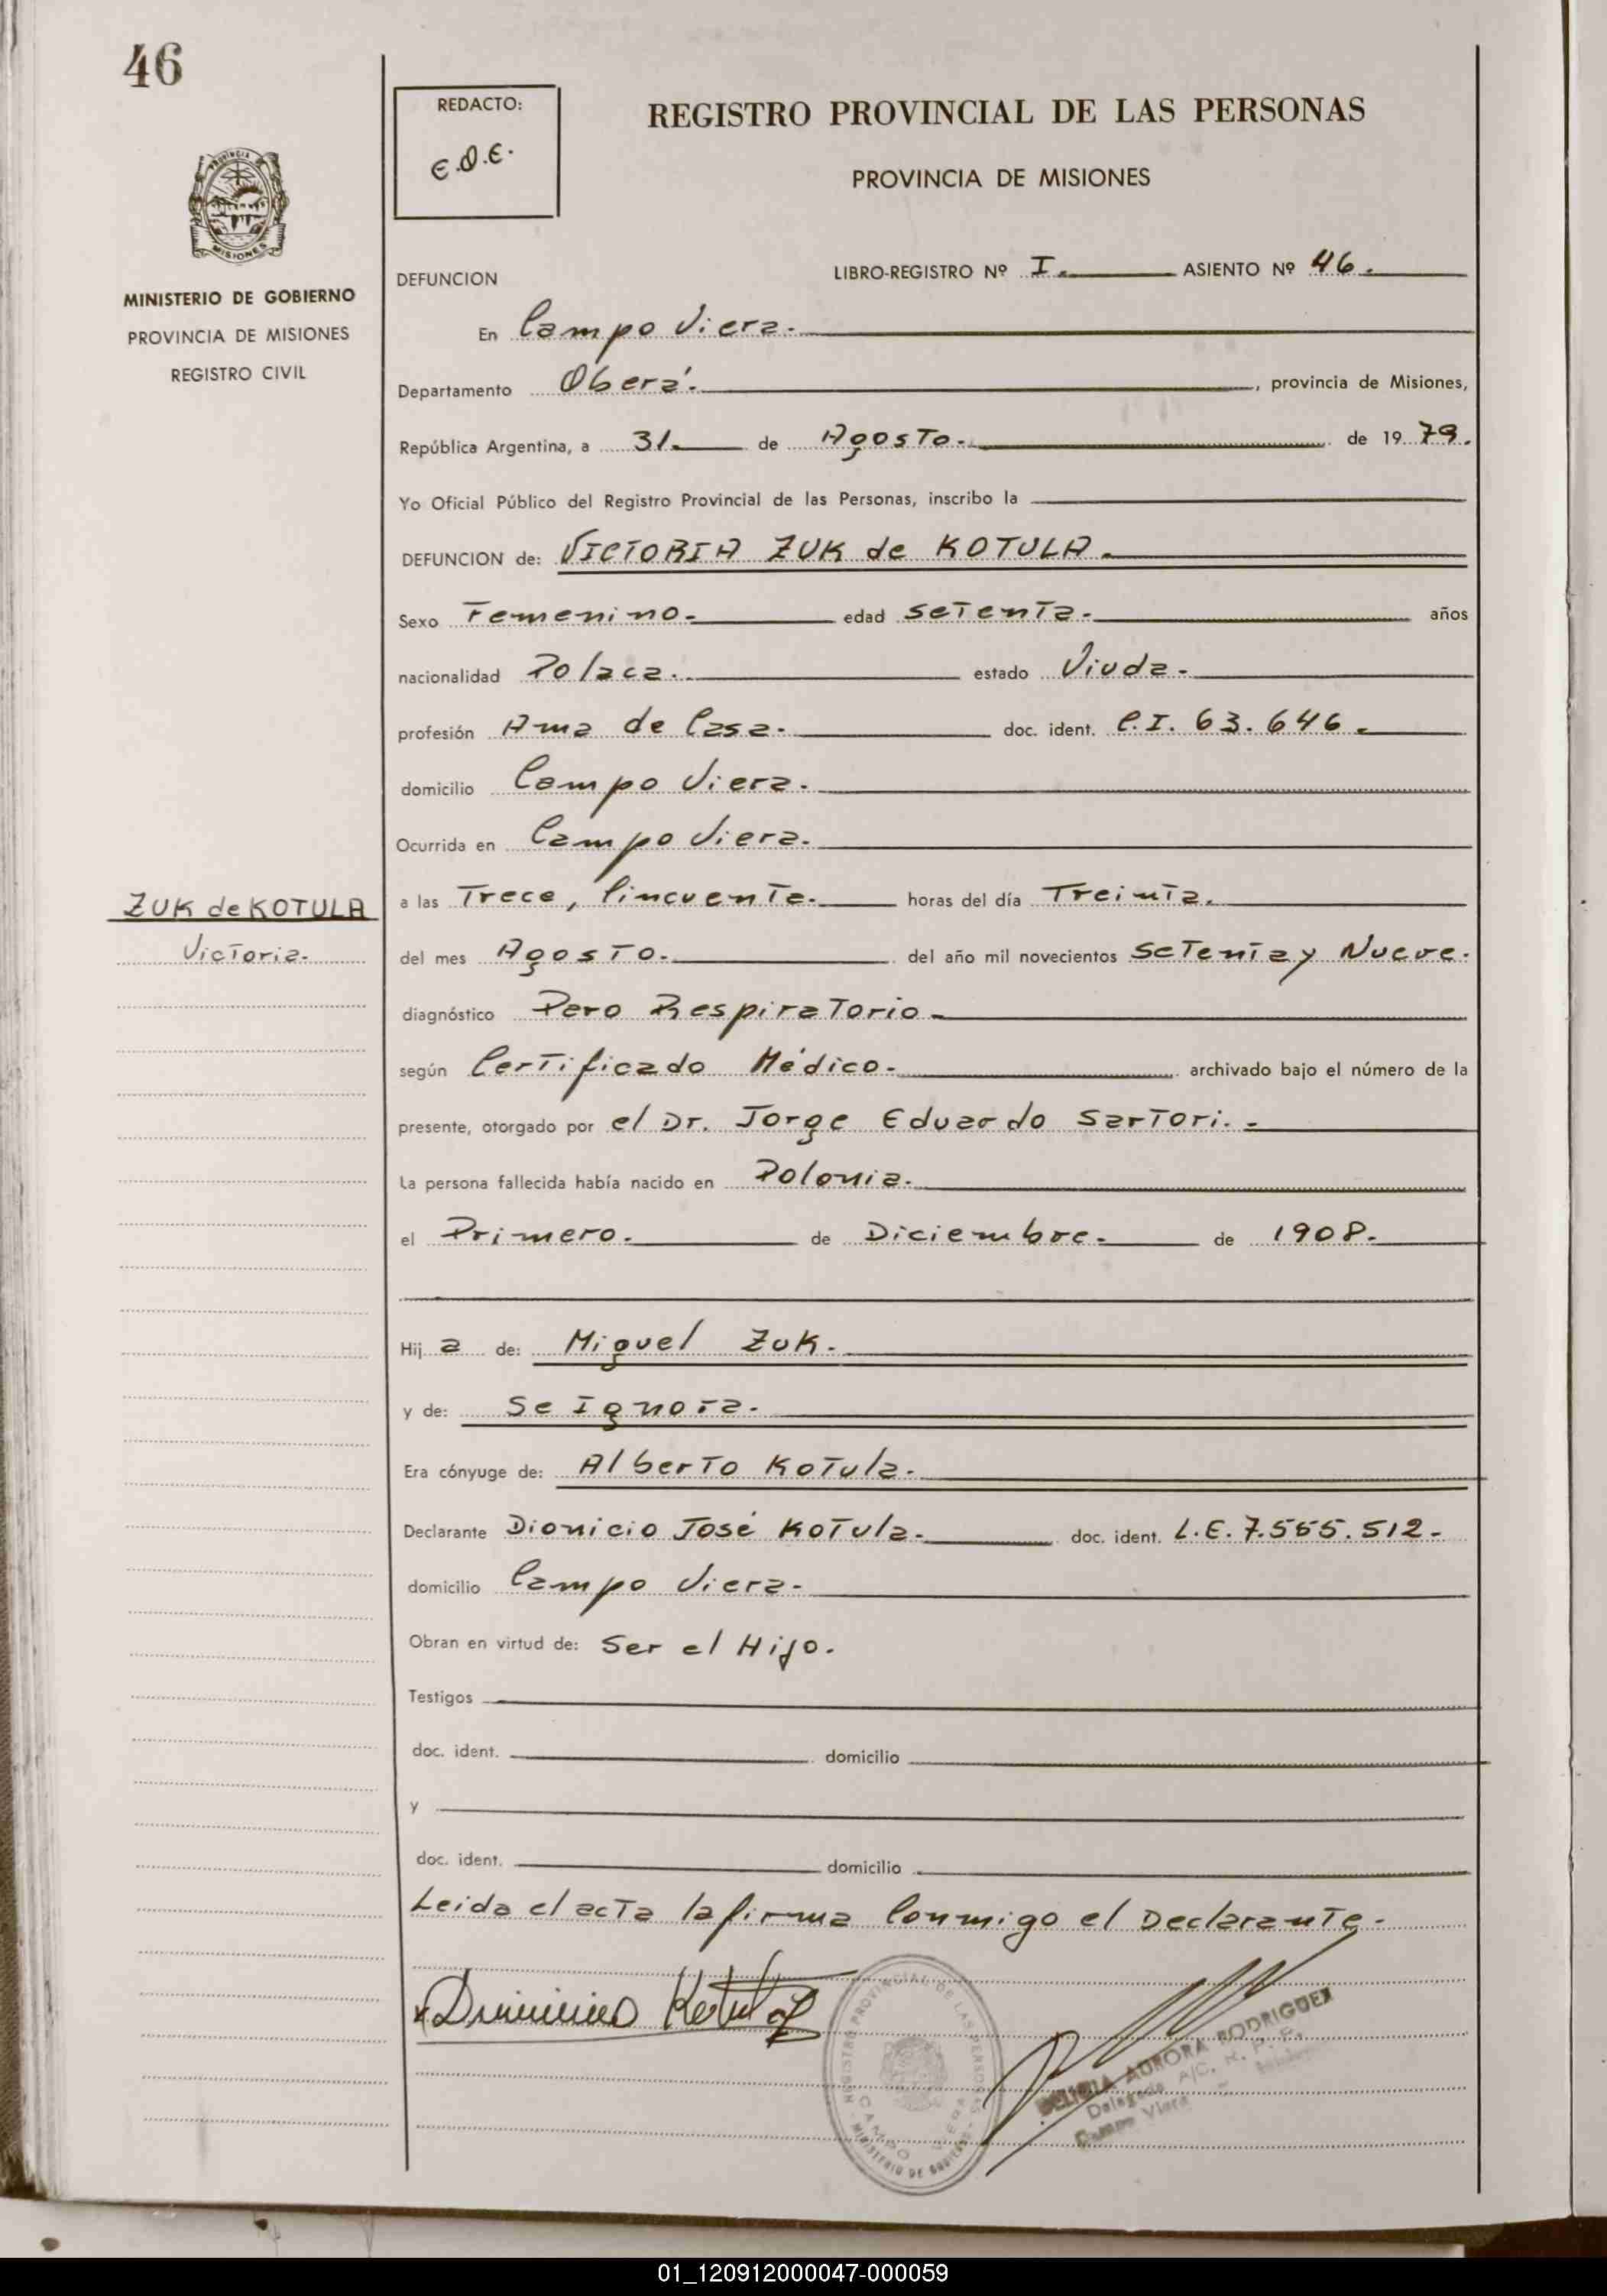 46
REDACTO:
E.O.E.
REGISTRO PROVINCIAL DE LAS PERSONAS
PROVINCIA DE MISIONES
PROVINCIA DE
MISIONES
MINISTERIO DE GOBIERNO
PROVINCIA DE MISIONES
REGISTRO CIVIL
DEFUNCION LIBRO-REGISTRO Nº I. ASIENTO Nº 46.
En Campo Viera.
Departamento Oberá. , provincia de Misiones,
República Argentina, a 31. de Agosto. de 1979.
Yo Oficial Público del Registro Provincial de las Personas, inscribo la
DEFUNCION de: VICTORIA ZUK de KOTULA.
Sexo Femenino. edad Setenta. años
nacionalidad Polaca. estado Viuda.
profesión Ama de Casa. doc. ident. C.I. 63.646.
domicilio Campo Viera.
Ocurrida en Campo Viera.
ZUK de KOTULA
Victoria.
a las Trece, Cincuenta. horas del día Treinta.
del mes Agosto. del año mil novecientos Setenta y Nueve.
diagnóstico Pero Respiratorio
según Certificado Médico. archivado bajo el número de la
presente, otorgado por el Dr. Jorge Eduardo Sartori.
La persona fallecida había nacido en Polonia.
el Primero. de Diciembre. de 1908.
Hij a de: Miguel Zuk.
y de: Se Ignora.
Era cónyuge de: Alberto Kotula.
Declarante Dionicio José Kotula. doc. ident. L.E. 7.555.512.
domicilio Campo Viera.
Obran en virtud de: Ser el Hijo.
Testigos
doc. ident. domicilio
y
doc. ident. domicilio
Leida el acta la firma Conmigo el Declarante.
Kotula
REGISTRO PROVINCIAL DE LAS PERSONAS
CAMPO VIERA
MINISTERIO DE GOBIERNO
DELICIA AURORA RODRIGUEZ
Delegada A/C. R. P. P.
Campo Viera
01_120912000047-000059